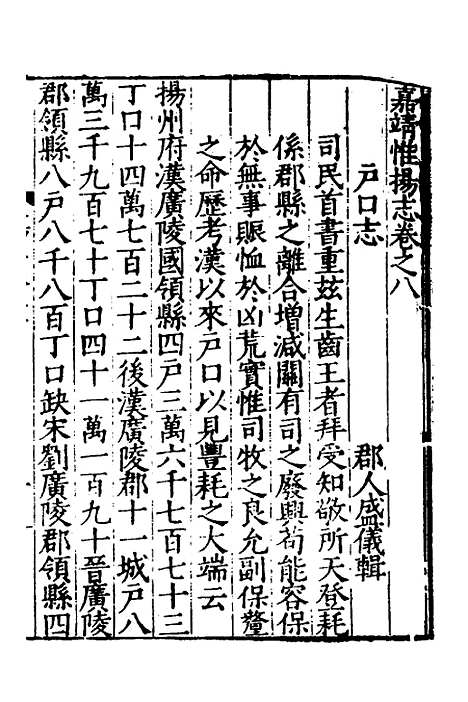 嘉靖惟揚志卷之八
郡人盛儀輯
戶口志
司民首書重玆生齒王者拜受知敬所天登耗
係郡縣之離合增減關有司之廢興茍能容保
於無事賑恤於凶荒實惟司牧之良允副保釐
之命歷考漢以來戶口以見豐耗之大端云
揚州府漢廣陵國領縣四戶三萬六千七百七十三
丁口十四萬七百二十二後漢廣陵郡十一城戶八
萬三千九百七十丁口四十一萬一百九十晉廣陵
郡領縣八戶八千八百丁口缺宋劉廣陵郡領縣四